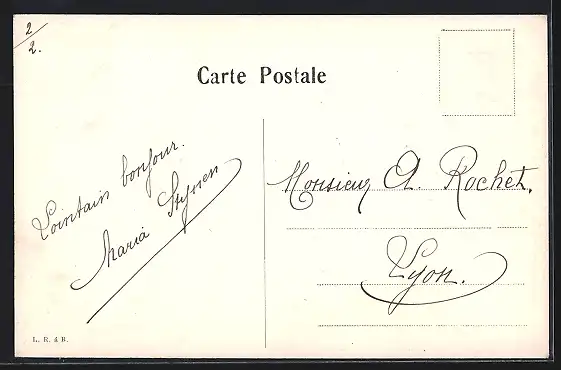 2/2.
Carte Postale
Lointain bonjour.
Maria
Monsieur A. Rochet.
Lyon.
L. R. & B.